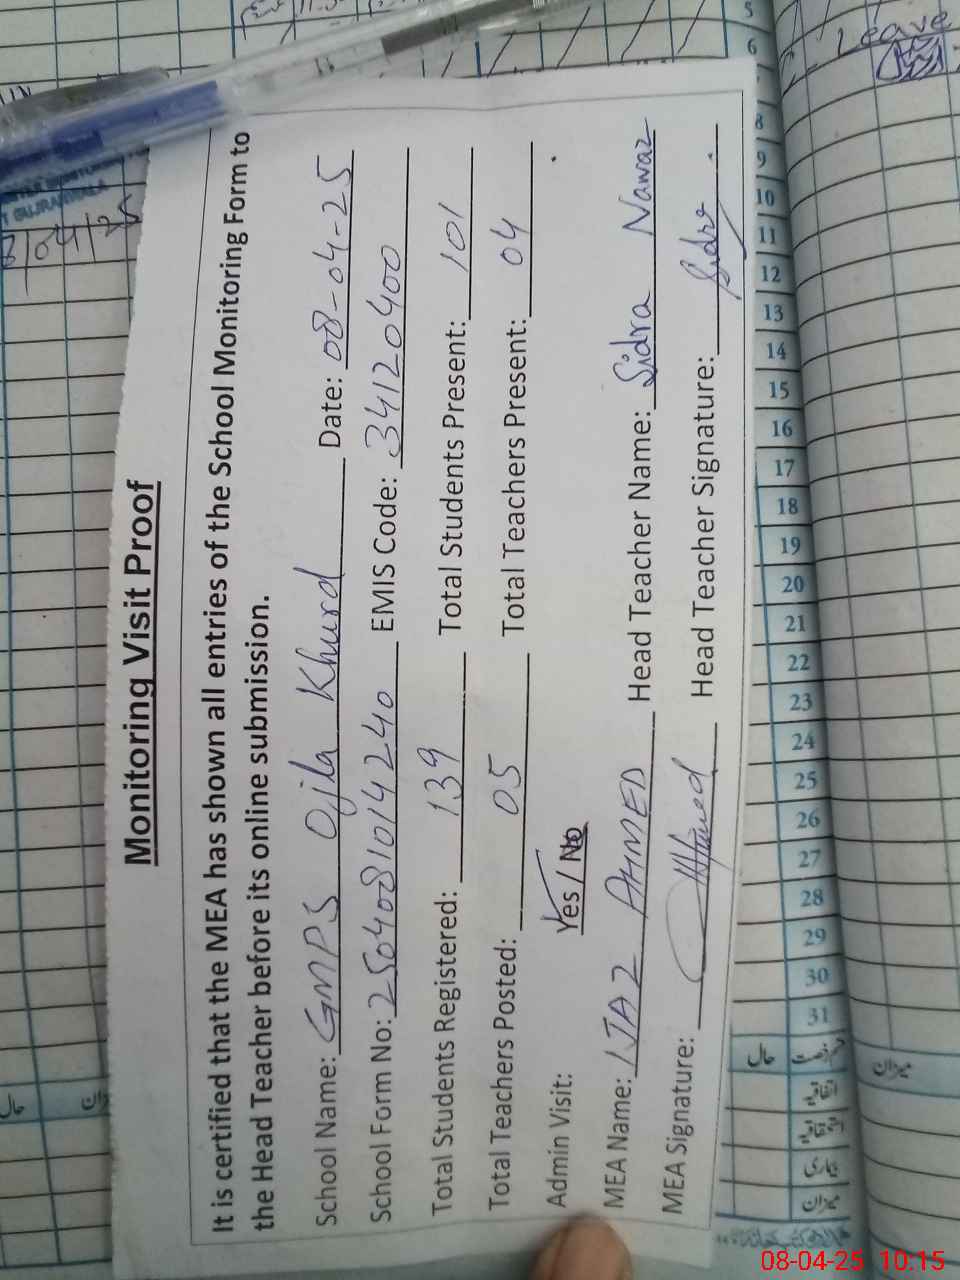 Monitoring Visit Proof
It is certified that the MEA has shown all entries of the School Monitoring Form to
the Head Teacher before its online submission.
School Name: GMPS Ojla Khurd Date: 08-04-25
School Form No: 250408101424240 EMIS Code: 34120400
Total Students Registered: 139 Total Students Present: 101
Total Teachers Posted: 05 Total Teachers Present: 04
Admin Visit: Yes / No
MEA Name: IJAZ AHMED Head Teacher Name: Sidra Nawaz
MEA Signature: Head Teacher Signature: Sidra
Leave
5
6
8
9
10
11
12
13
14
15
16
17
18
19
20
21
22
23
24
25
26
27
28
29
30
31
حال
میزان
اتفاقیہ
بیماری
میزان
08-04-25 10:15